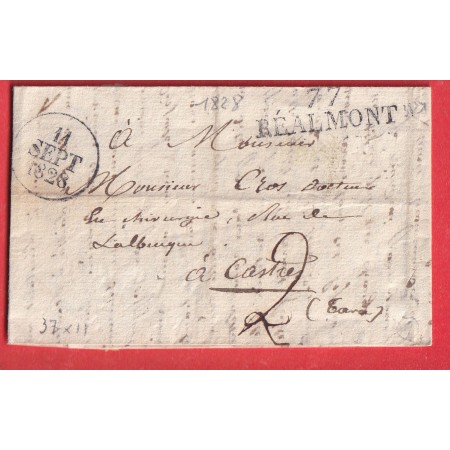 1828
77
RÉALMONT
11
SEPT
1828
à Monsieur
Monsieur Cros Docteur
en chirurgie, Rue de
à Castres
2
(Tarn)
37x11